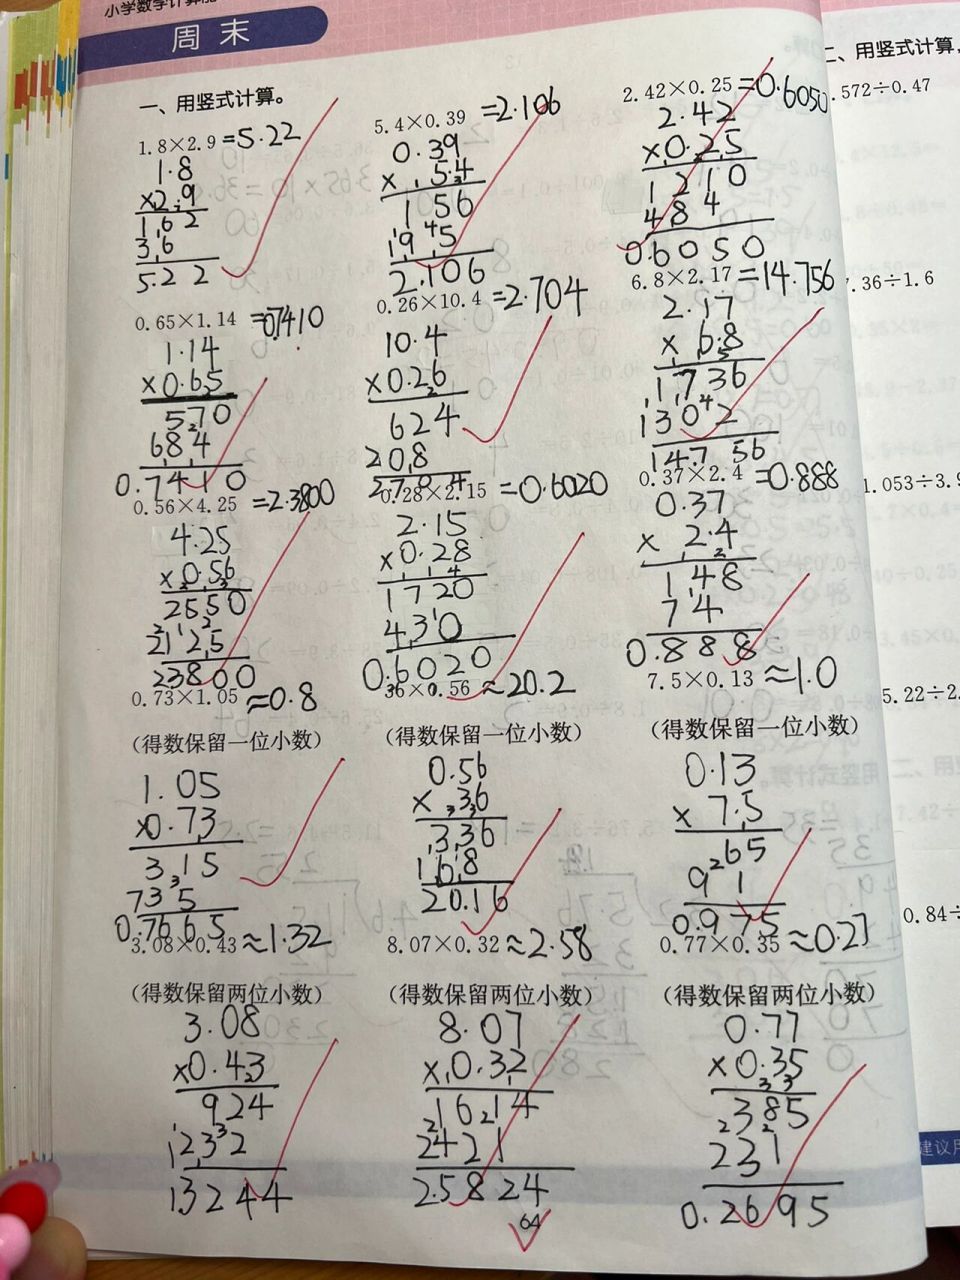 周末
一、用竖式计算。
1.8×2.9=5.22
5.4×0.39=2.106
2.42×0.25=0.6050
1.8
×2.9
162
36
5.22
0.39
×5.4
156
195
2.106
2.42
×0.25
1210
484
0.6050
0.65×1.14=0.7410
0.26×10.4=2.704
6.8×2.17=14.756
1.14
×0.65
570
684
0.7410
10.4
×0.26
624
208
2.704
2.17
×6.8
1736
1302
14.756
0.56×4.25=2.3800
0.28×2.15=0.6020
0.37×2.4=0.888
4.25
×0.56
2550
2125
23800
2.15
×0.28
1720
430
0.6020
0.37
×2.4
148
74
0.888
0.73×1.05≈0.8
36×0.56≈20.2
7.5×0.13≈1.0
(得数保留一位小数)
(得数保留一位小数)
(得数保留一位小数)
1.05
×0.73
315
735
0.7665
0.56
×36
336
168
20.16
0.13
×7.5
65
91
0.975
3.08×0.43≈1.32
8.07×0.32≈2.58
0.77×0.35≈0.27
(得数保留两位小数)
(得数保留两位小数)
(得数保留两位小数)
3.08
×0.43
924
1232
13244
8.07
×0.32
1614
2421
2.5824
0.77
×0.35
385
231
0.2695
64
二、用竖式计算,
.572÷0.47
7.36÷1.6
1.053÷3.9
5.22÷2.
0.84÷
建议用